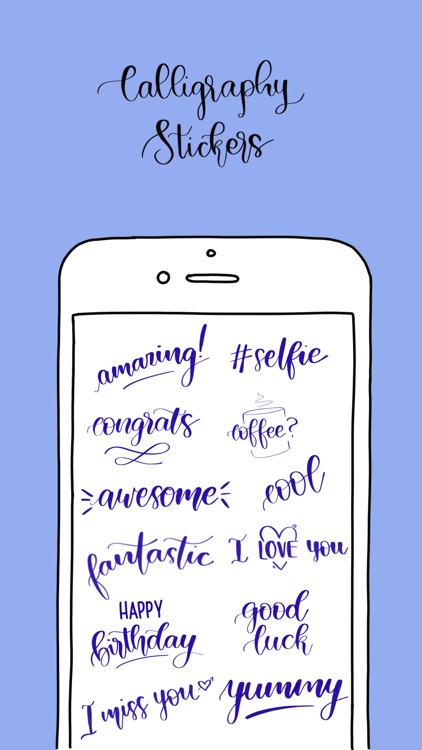 Calligraphy
Stickers
amazing!
#selfie
congrats
coffee?
awesome
cool
fantastic
I LOVE you
HAPPY
birthday
good
luck
I miss you
yummy